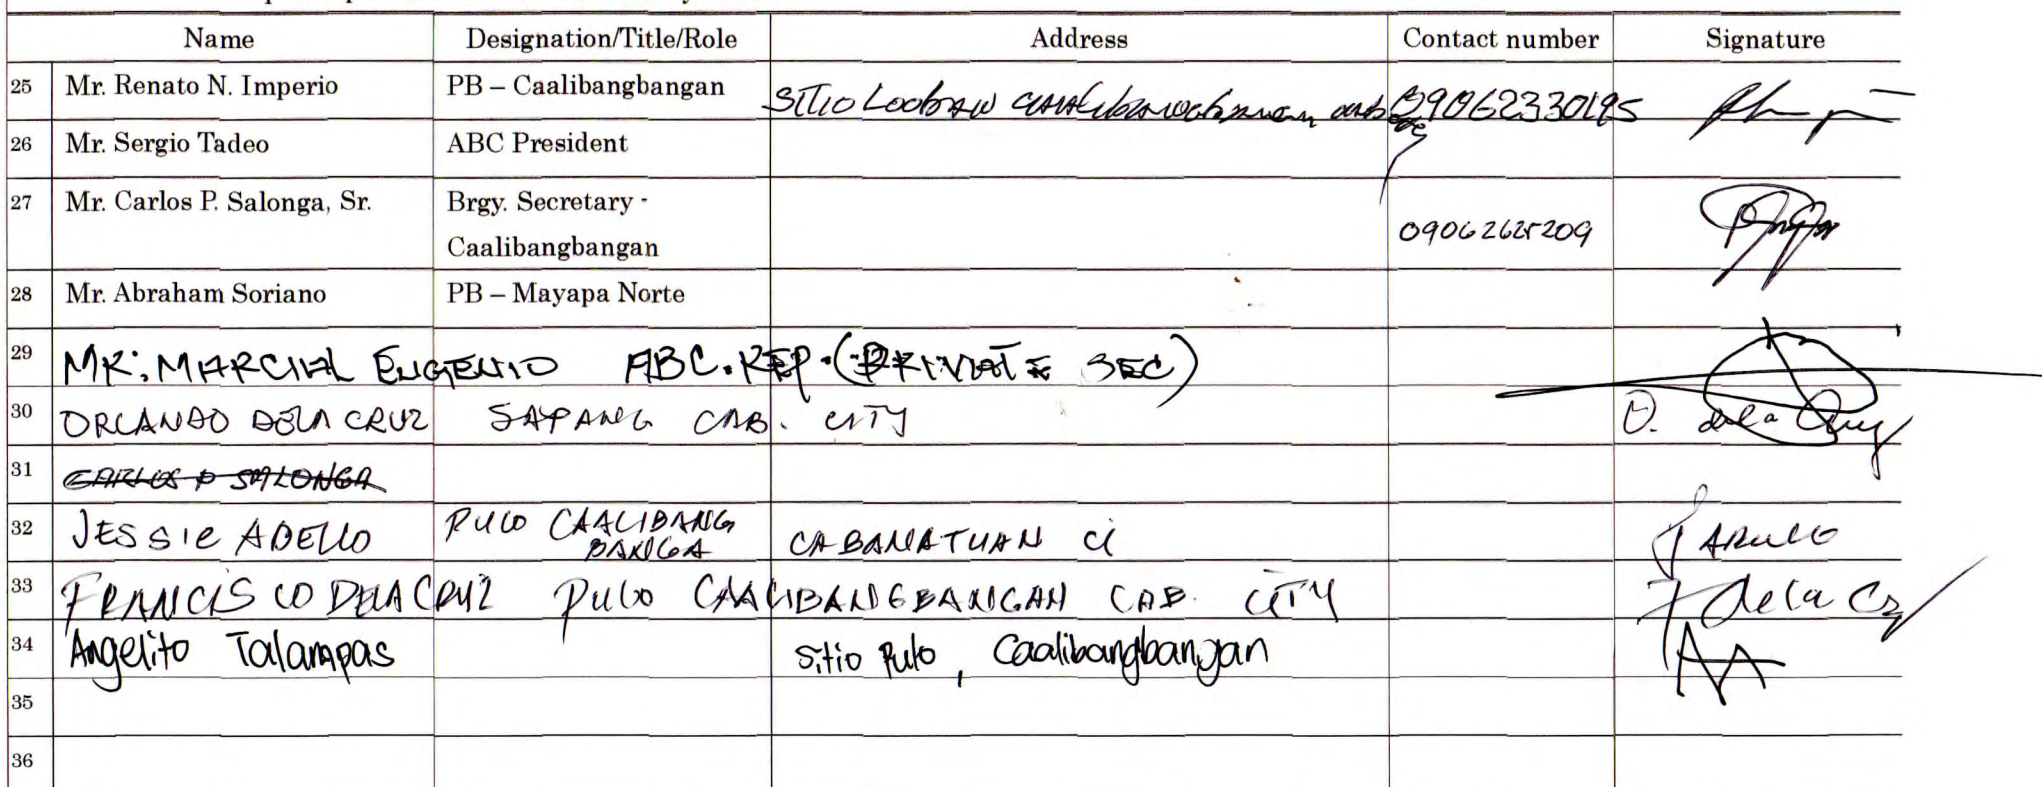 Name Designation/Title/Role Address Contact number Signature
25 Mr. Renato N. Imperio PB – Caalibangbangan Sitio 09062330195
26 Mr. Sergio Tadeo ABC President
27 Mr. Carlos P. Salonga, Sr. Brgy. Secretary -
Caalibangbangan 09062625209
28 Mr. Abraham Soriano PB – Mayapa Norte
29 MR. MARCIAL EUGENIO ABC. REP. (PRIVATE SEC)
30 ORLANDO DELA CRUZ SAPANG CAB. CITY O. dela Cruz
31 CARLOS P SALONGA
32 JESSIE ADELLO PULO CAALIBANG
BANGA CABANATUAN Ci
33 FRANCISCO DELA CRUZ PULO CAALIBANGBANGAN CAB. CITY F dela Cz
34 Angelito Talampas Sitio Pulo, Caalibangbangan AA
35
36